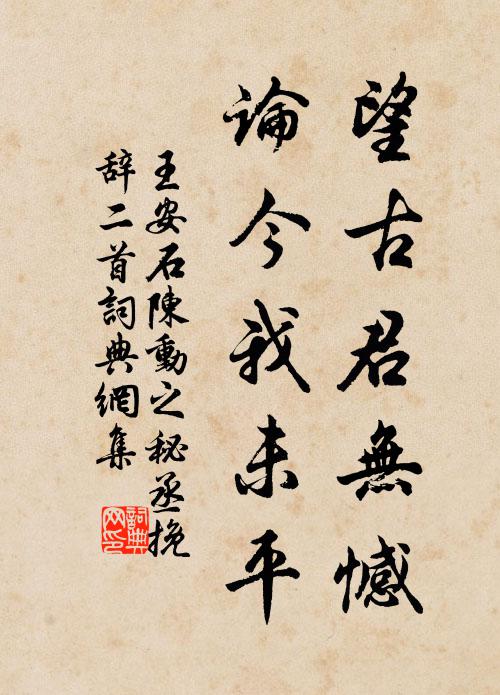 望古君無憾
論今我未平
王安石陳動之秘丞挽
辞二首詞典網集
詞典網印